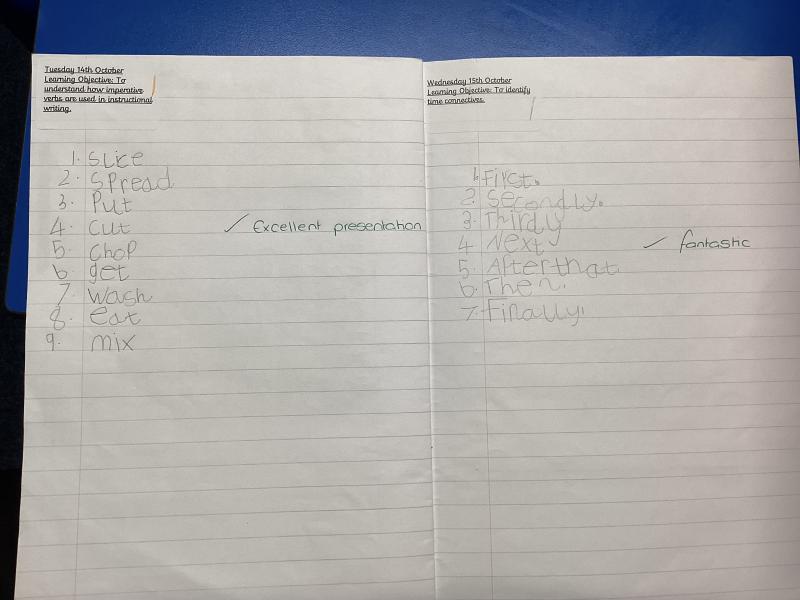 Tuesday 14th October
Learning Objective: To
understand how imperative
verbs are used in instructional
writing.
1. Slice
2. Spread
3. Put
4. Cut
✓ Excellent presentation
5. Chop
6. get
7. Wash
8. eat
9. mix
Wednesday 15th October
Learning Objective: To identify
time connectives.
1. First.
2. Secondly.
3. Thirdly
4. Next
✓ fantastic
5. After that
6. Then.
7. Finally.